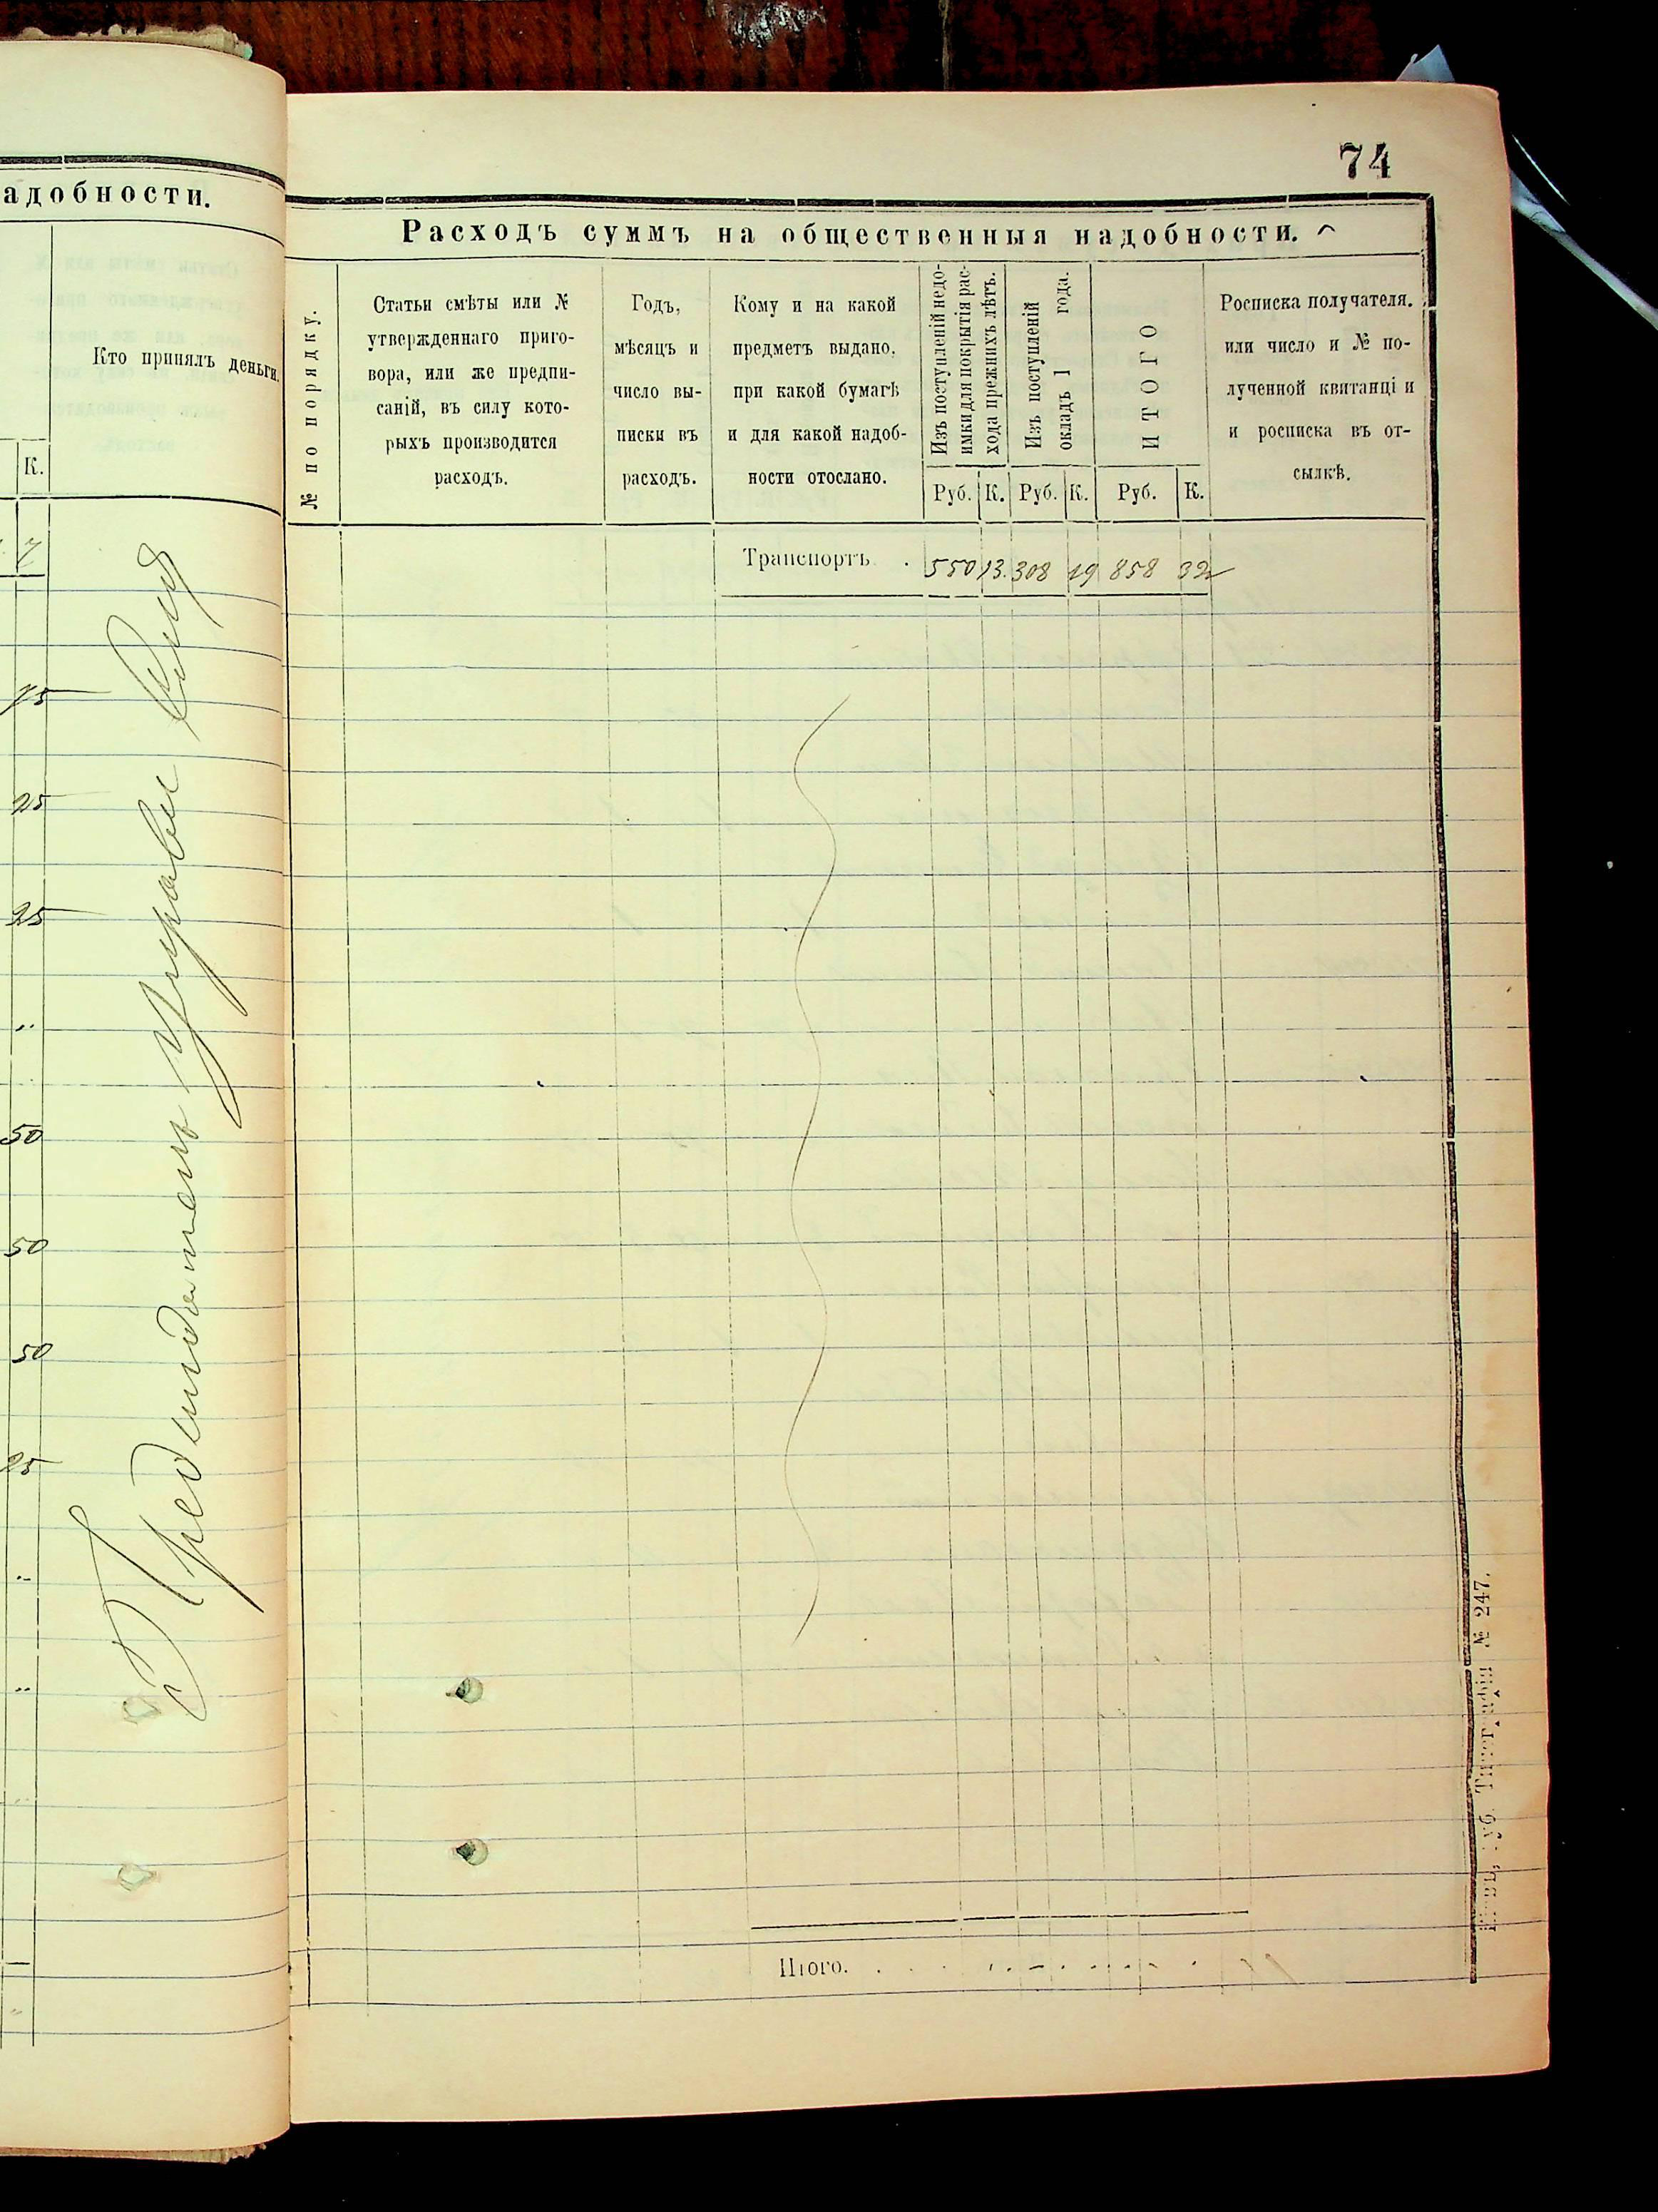 адобности.
Кто принялъ деньги.
К.
7
75
25
25
„
50
50
50
25
„
„
Председатель Управы
74
Расходъ суммъ на общественныя надобности.
№ по порядку.
Статьи смѣты или №
утвержденнаго приго-
вора, или же предпи-
саній, въ силу кото-
рыхъ производится
расходъ.
Годъ,
мѣсяцъ и
число вы-
писки въ
расходъ.
Кому и на какой
предметъ выдано,
при какой бумагѣ
и для какой надоб-
ности отослано.
Изъ поступленій недо-
имки для покрытія рас-
хода прежнихъ лѣтъ.
Изъ поступленій
окладъ 1 года.
ИТОГО
Руб. К. Руб. К. Руб. К.
Росписка получателя.
или число и № по-
лученной квитанці и
и росписка въ от-
сылкѣ.
Транспортъ . 550 13. 308 19 858 32
Итого. . . . . . . . . . .
губ. Типографія № 247.